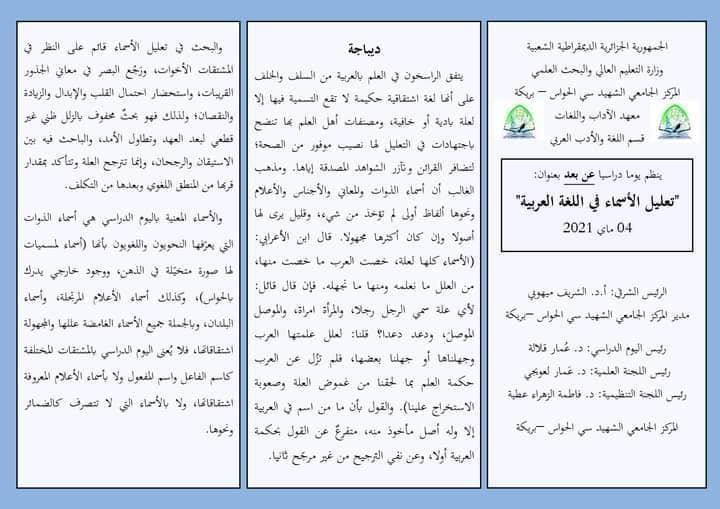 الجمهورية الجزائرية الديمقراطية الشعبية
وزارة التعليم العالي والبحث العلمي
المركز الجامعي الشهيد سي الحواس – بريكة
معهد الآداب واللغات
قسم اللغة والأدب العربي
ينظم يوما دراسيا عن بعد بعنوان:
"تعليل الأسماء في اللغة العربية"
04 ماي 2021
الرئيس الشرفي: أ.د. الشريف ميهوبي
مدير المركز الجامعي الشهيد سي الحواس –بريكة
رئيس اليوم الدراسي: د. عُمار قلالة
رئيس اللجنة العلمية: د. عمار لعويجي
رئيس اللجنة التنظيمية: د. فاطمة الزهراء عطية
المركز الجامعي الشهيد سي الحواس –بريكة
ديباجة
يتفق الراسخون في العلم بالعربية من السلف والخلف
على أنها لغة اشتقاقية حكيمة لا تقع التسمية فيها إلا
لعلة بادية أو خافية، ومصنفات أهل العلم بها تنضح
باجتهادات في التعليل لها نصيب موفور من الصحة؛
لتضافر القرائن وتآزر الشواهد المصدقة إياها. ومذهب
الغالب أن أسماء الذوات والمعاني والأجناس والأعلام
ونحوها ألفاظ أولى لم تؤخذ من شيء، وقليل يرى لها
أصولا وإن كان أكثرها مجهولا. قال ابن الأعرابي:
(الأسماء كلها لعلة، خصت العرب ما خصت منها،
من العلل ما نعلمه ومنها ما نجهله. فإن قال قائل:
لأي علة سمي الرجل رجلا، والمرأة امرأة، والموصل
الموصل، ودعد دعدا؟ قلنا: لعلل علمتها العرب
وجهلناها أو جهلنا بعضها، فلم تزُل عن العرب
حكمة العلم بما لحقنا من غموض العلة وصعوبة
الاستخراج علينا). والقول بأن ما من اسم في العربية
إلا وله أصل مأخوذ منه، متفرعٌ عن القول بحكمة
العربية أولا، وعن نفي الترجيح من غير مرجّح ثانيا.
والبحث في تعليل الأسماء قائم على النظر في
المشتقات الأخوات، ورَجْع البصر في معاني الجذور
القريبات، واستحضار احتمال القلب والإبدال والزيادة
والنقصان؛ ولذلك فهو بحثٌ محفوف بالزلل ظني غير
قطعي لبعد العهد وتطاول الأمد، والباحث فيه بين
الاستيقان والرجحان، وإنما تترجح العلة وتتأكد بمقدار
قربها من المنطق اللغوي وبعدها من التكلف.
والأسماء المعنية باليوم الدراسي هي أسماء الذوات
التي يعرّفها النحويون واللغويون بأنها (أسماء لمسميات
لها صورة متخيّلة في الذهن، ووجود خارجي يدرك
بالحواس)، وكذلك أسماء الأعلام المرتجلة، وأسماء
البلدان، وبالجملة جميع الأسماء الغامضة عللها والمجهولة
اشتقاقاتها، فلا يُعنى اليوم الدراسي بالمشتقات المختلفة
كاسم الفاعل واسم المفعول ولا بأسماء الأعلام المعروفة
اشتقاقاتها، ولا بالأسماء التي لا تتصرف كالضمائر
ونحوها.